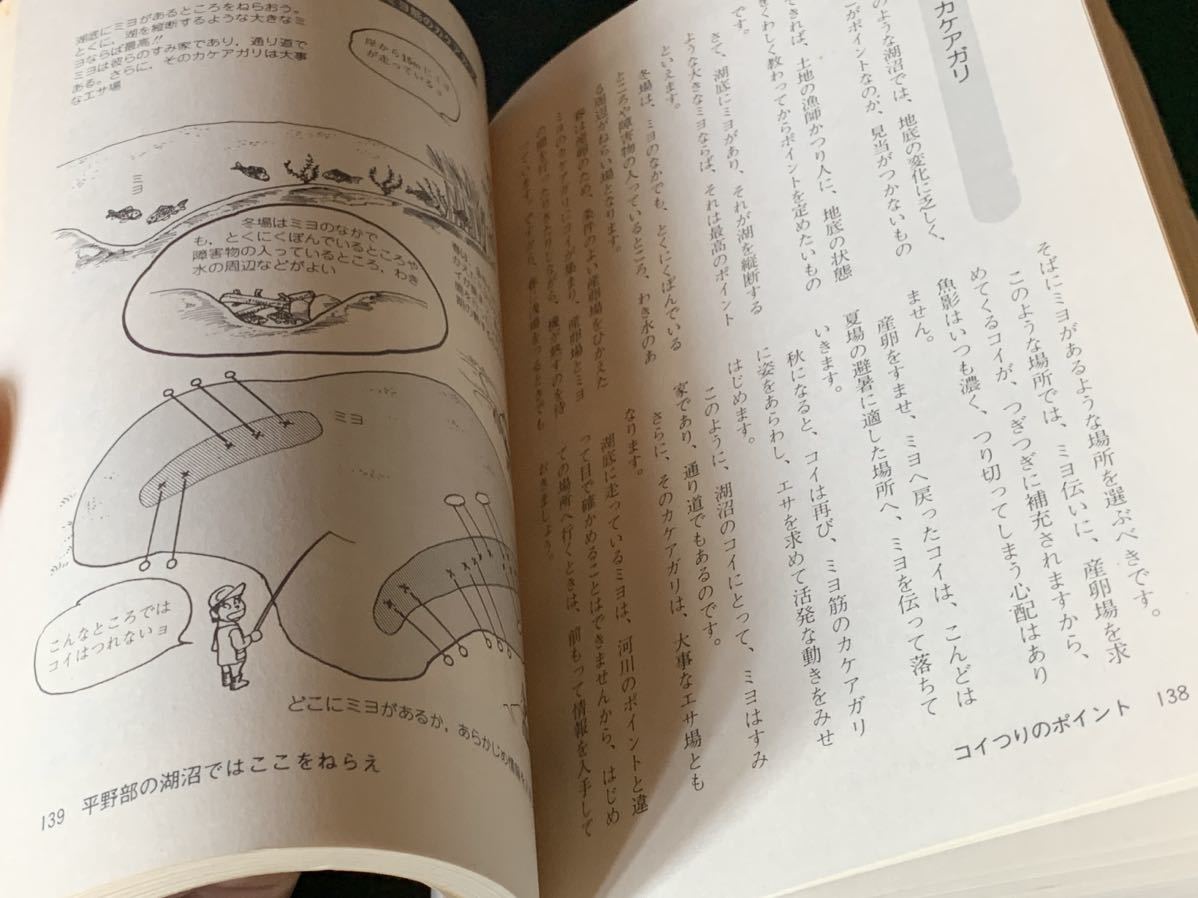 カケアガリ
のような湖沼では、地底の変化に乏しく、
こがポイントなのか、見当がつかないもの
です。
できれば、土地の漁師かつり人に、地底の状態
をくわしく教わってからポイントを定めたいもの
です。
さて、湖底にミヨがあり、それが湖を縦断する
ような大きなミヨならば、それは最高のポイント
といえます。
冬場は、ミヨのなかでも、とくにくぼんでいる
ところや障害物の入っているところ、わき水のあ
る周辺がねらい場となります。
春は産卵のため、条件のよい産卵場をひかえた
ミヨのカケアガリにコイが集まり、産卵場とミヨ
の間を行ったりきたりしながら、機が熟すのを待
っています。ですから、春に浅場をつるときでも
そばにミヨがあるような場所を選ぶべきです。
このような場所では、ミヨ伝いに、産卵場を求
めてくるコイが、つぎつぎに補充されますから、
魚影はいつも濃く、つり切ってしまう心配はあり
ません。
産卵をすませ、ミヨへ戻ったコイは、こんどは
夏場の避暑に適した場所へ、ミヨを伝って落ちて
いきます。
秋になると、コイは再び、ミヨ筋のカケアガリ
に姿をあらわし、エサを求めて活発な動きをみせ
はじめます。
このように、湖沼のコイにとって、ミヨはすみ
家であり、通り道でもあるのです。
さらに、そのカケアガリは、大事なエサ場とも
なります。
湖底に走っているミヨは、河川のポイントと違
って目で確かめることはできませんから、はじめ
ての場所へ行くときは、前もって情報を入手して
おきましょう。
コイつりのポイント 138
湖底にミヨがあるところをねらおう。
とくに、湖を縦断するような大きなミ
ヨならば最高!!
ミヨは彼らのすみ家であり，通り道で
ある。さらに，そのカケアガリは大事
なエサ場
のカケア
岸から15mにミヨ
が走っているヨ
ミヨ
冬場はミヨのなかで
も，とくにくぼんでいるところや
障害物の入っているところ，わき
水の周辺などがよい
ミヨ
こんなところでは
コイはつれないヨ
どこにミヨがあるか，あらかじめ情報
139 平野部の湖沼ではここをねらえ